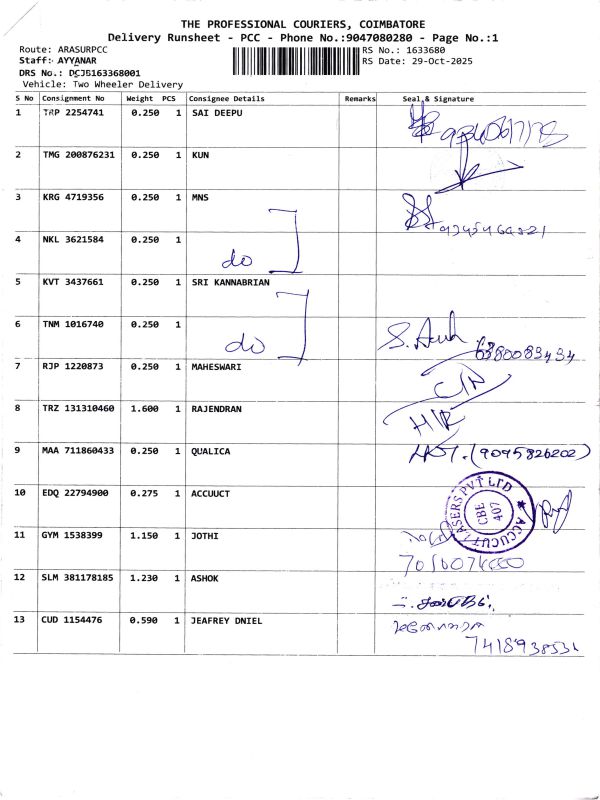 THE PROFESSIONAL COURIERS, COIMBATORE
Delivery Runsheet - PCC - Phone No.:9047080280 - Page No.:1
Route: ARASURPCC RS No.: 1633680
Staff: AYYANAR RS Date: 29-Oct-2025
DRS No.: DCJ5163368001
Vehicle: Two Wheeler Delivery
S No Consignment No Weight PCS Consignee Details Remarks Seal & Signature
1 TRP 2254741 0.250 1 SAI DEEPU
2 TMG 200876231 0.250 1 KUN
3 KRG 4719356 0.250 1 MNS
4 NKL 3621584 0.250 1 do
5 KVT 3437661 0.250 1 SRI KANNABRIAN
6 TNM 1016740 0.250 1 do
6380083434
7 RJP 1220873 0.250 1 MAHESWARI
8 TRZ 131310460 1.600 1 RAJENDRAN H/R
9 MAA 711860433 0.250 1 QUALICA (9095826202)
10 EDQ 22794900 0.275 1 ACCUUCT
ACCUCUT LASERS PVT LTD
CBE
407
11 GYM 1538399 1.150 1 JOTHI
12 SLM 381178185 1.230 1 ASHOK
13 CUD 1154476 0.590 1 JEAFREY DNIEL
7418938531